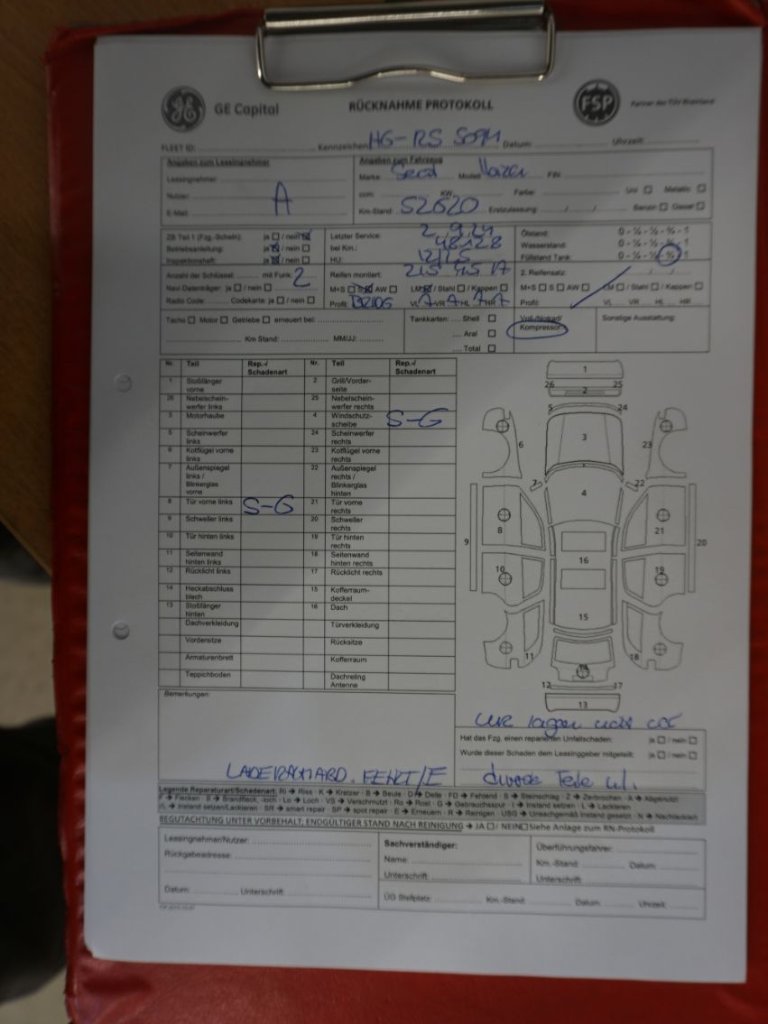 GE Capital
RÜCKNAHME PROTOKOLL
FSP
Partner der TÜV Rheinland
FLEET ID: Kennzeichen Datum: Uhrzeit:
HG-RS
Angaben zum Leasingnehmer
Angaben zum Fahrzeug
Leasingnehmer:
Marke: Seat Modell: FIN:
Nutzer: A
ccm: KW: Farbe: Uni Metallic
E-Mail:
Km-Stand: 52620 Erstzulassung: / / Benzin Diesel
ZB Teil 1 (Fzg.-Schein): ja / nein
Letzter Service:
Ölstand: 0 - ¼ - ½ - ¾ - 1
Betriebsanleitung: ja / nein
bei Km.: 48128
Wasserstand: 0 - ¼ - ½ - ¾ - 1
Inspektionsheft: ja / nein
HU:
Füllstand Tank: 0 - ¼ - ½ - ¾ - 1
Anzahl der Schlüssel: mit Funk: 2
Reifen montiert: 215 45 17
2. Reifensatz: / /
Navi Datenträger: ja / nein
M+S S AW LM / Stahl / Kappen
M+S S AW LM / Stahl / Kappen
Radio Code: Codekarte: ja / nein
Profil: VL 7 VR 7 HL 7 HR 7
Profil: VL VR HL HR
Tacho Motor Getriebe erneuert bei:
Tankkarten: Shell
Kompressor:
Sonstige Ausstattung:
Aral
Km Stand: MM/JJ:
Total
Nr. Teil Rep.-/ Schadenart Nr. Teil Rep.-/ Schadenart
1 Stoßfänger vorne 2 Grill/Vorderseite
26 Nebelscheinwerfer links 25 Nebelscheinwerfer rechts
3 Motorhaube 4 Windschutzscheibe S-G
5 Scheinwerfer links 24 Scheinwerfer rechts
6 Kotflügel vorne links 23 Kotflügel vorne rechts
7 Außenspiegel links / Blinkerglas vorne 22 Außenspiegel rechts / Blinkerglas hinten
8 Tür vorne links S-G 21 Tür vorne rechts
9 Schweller links 20 Schweller rechts
10 Tür hinten links 19 Tür hinten rechts
11 Seitenwand hinten links 18 Seitenwand hinten rechts
12 Rücklicht links 17 Rücklicht rechts
14 Heckabschlussblech 15 Kofferraumdeckel
13 Stoßfänger hinten 16 Dach
Dachverkleidung Türverkleidung
Vordersitze Rücksitze
Armaturenbrett Kofferraum
Teppichboden Dachreling Antenne
1
26 25
2
5 24
3
6 23
7 22
4
8 21
9 20
10 19
16
15
11 18
14
12 17
13
Bemerkungen:
Hat das Fzg. einen reparierten Unfallschaden: ja / nein
Wurde dieser Schaden dem Leasinggeber mitgeteilt: ja / nein
Legende Reparaturart/Schadenart: RI → Riss - K → Kratzer - B → Beule - D → Delle - FD → Fehlend - S → Steinschlag - Z → Zerbrochen - A → Abgenutzt
BEGUTACHTUNG UNTER VORBEHALT, ENDGÜLTIGER STAND NACH REINIGUNG → JA / NEIN Siehe Anlage zum RN-Protokoll
Leasingnehmer/Nutzer:
Sachverständiger:
Überführungsfahrer:
Rückgabeadresse:
Name:
Km.-Stand: Datum:
Unterschrift:
Unterschrift:
Datum: Unterschrift:
ÜG Stellplatz: Km.-Stand: Datum: Uhrzeit: